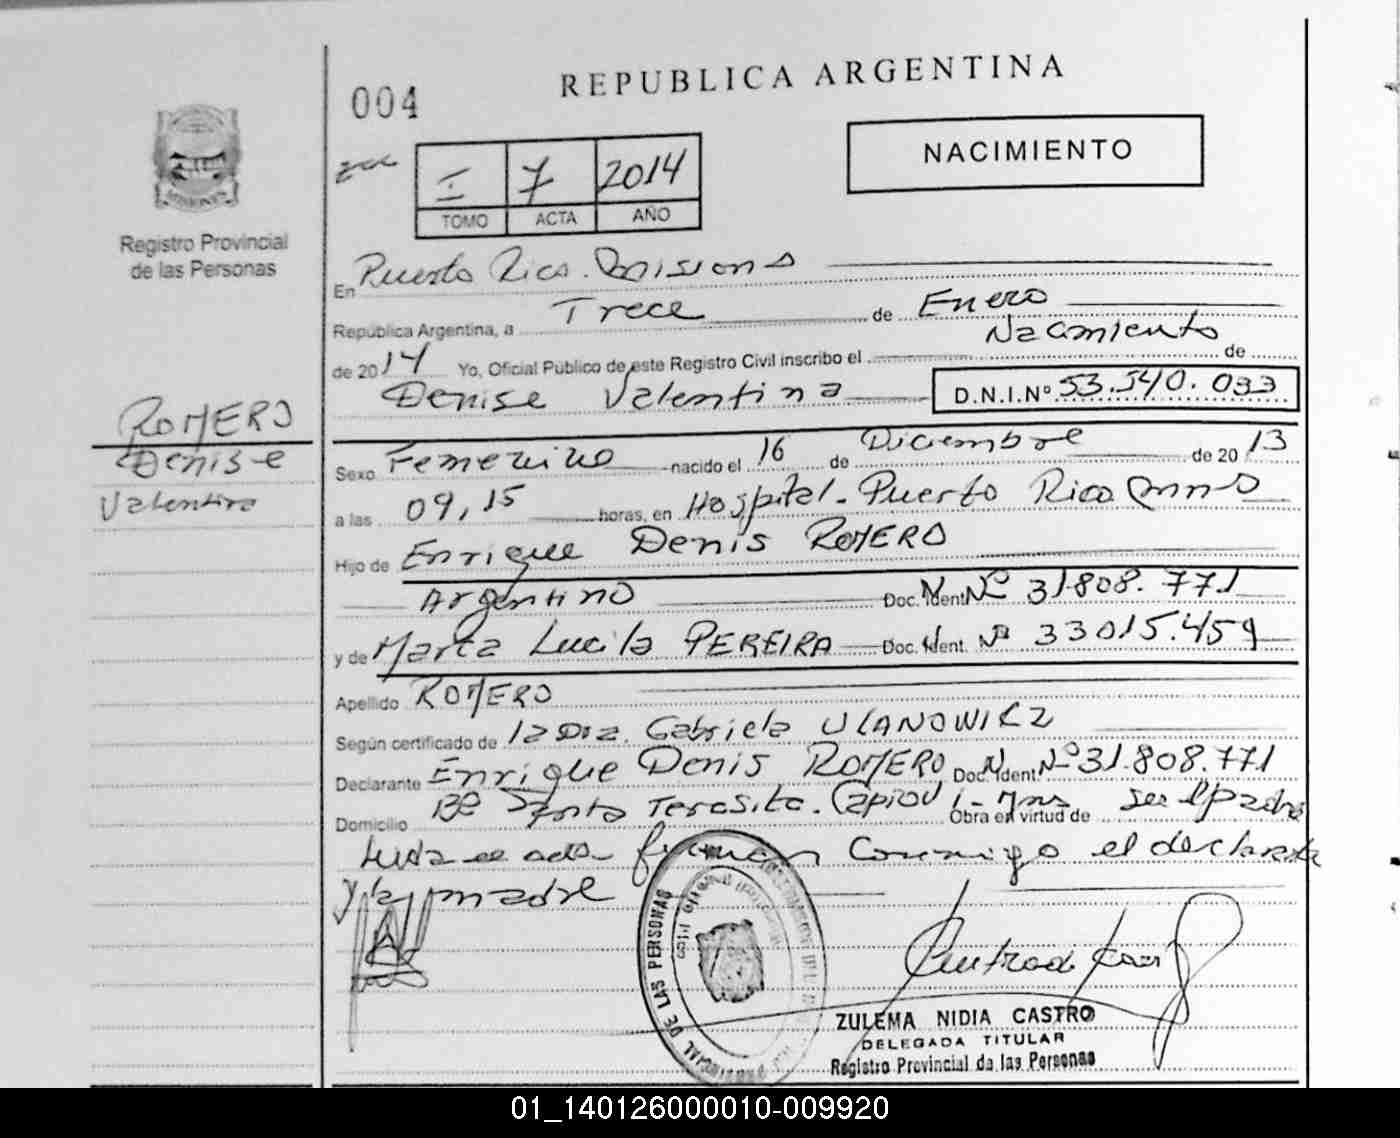 REPUBLICA ARGENTINA
004
NACIMIENTO
I 7 2014
TOMO ACTA AÑO
MISIONES
Registro Provincial
de las Personas
En Puerto Rico. Misiones
República Argentina, a Trece de Enero
de 2014 Yo, Oficial Público de este Registro Civil inscribo el Nacimiento de
Denise Valentina D.N.I.Nº 53.540.033
ROMERO
Denise
Valentina
Sexo Femenino nacido el 16 de Diciembre de 2013
a las 09,15 horas, en Hospital. Puerto Rico Mnes
Hijo de Enrique Denis ROMERO
Argentino Doc. Ident. Nº 31.808.771
y de Marta Lucila PEREIRA Doc. Ident. Nº 33015.459
Apellido ROMERO
Según certificado de la Dra. Gabriela ULANOWICZ
Declarante Enrique Denis ROMERO Doc. Ident. Nº 31.808.771
Domicilio Bº Santa Teresita. Capioví - Mns Obra en virtud de ser el padre
Leída el acta firman conmigo el declarante
y la madre
DE LAS PERSONAS
ZULEMA NIDIA CASTRO
DELEGADA TITULAR
Registro Provincial de las Personas
01_140126000010-009920